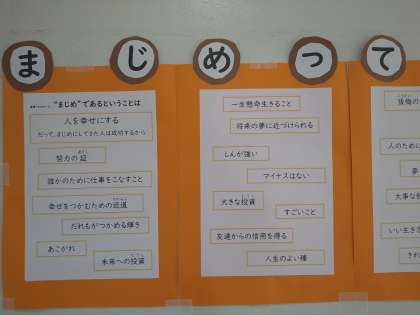 まじめって
"まじめ"であるということは
人を幸せにする
だって、まじめにしてきた人は成功するから
努力の証
誰かのために仕事をこなすこと
幸せをつかむための近道
だれもがつかめる輝き
あこがれ
未来への投資
一生懸命生きること
将来の夢に近づけられる
しんが強い
マイナスはない
大きな投資
すごいこと
友達からの信用を得る
人生のよい種
後悔の
人のために
夢
大事な
いい生き
きれ